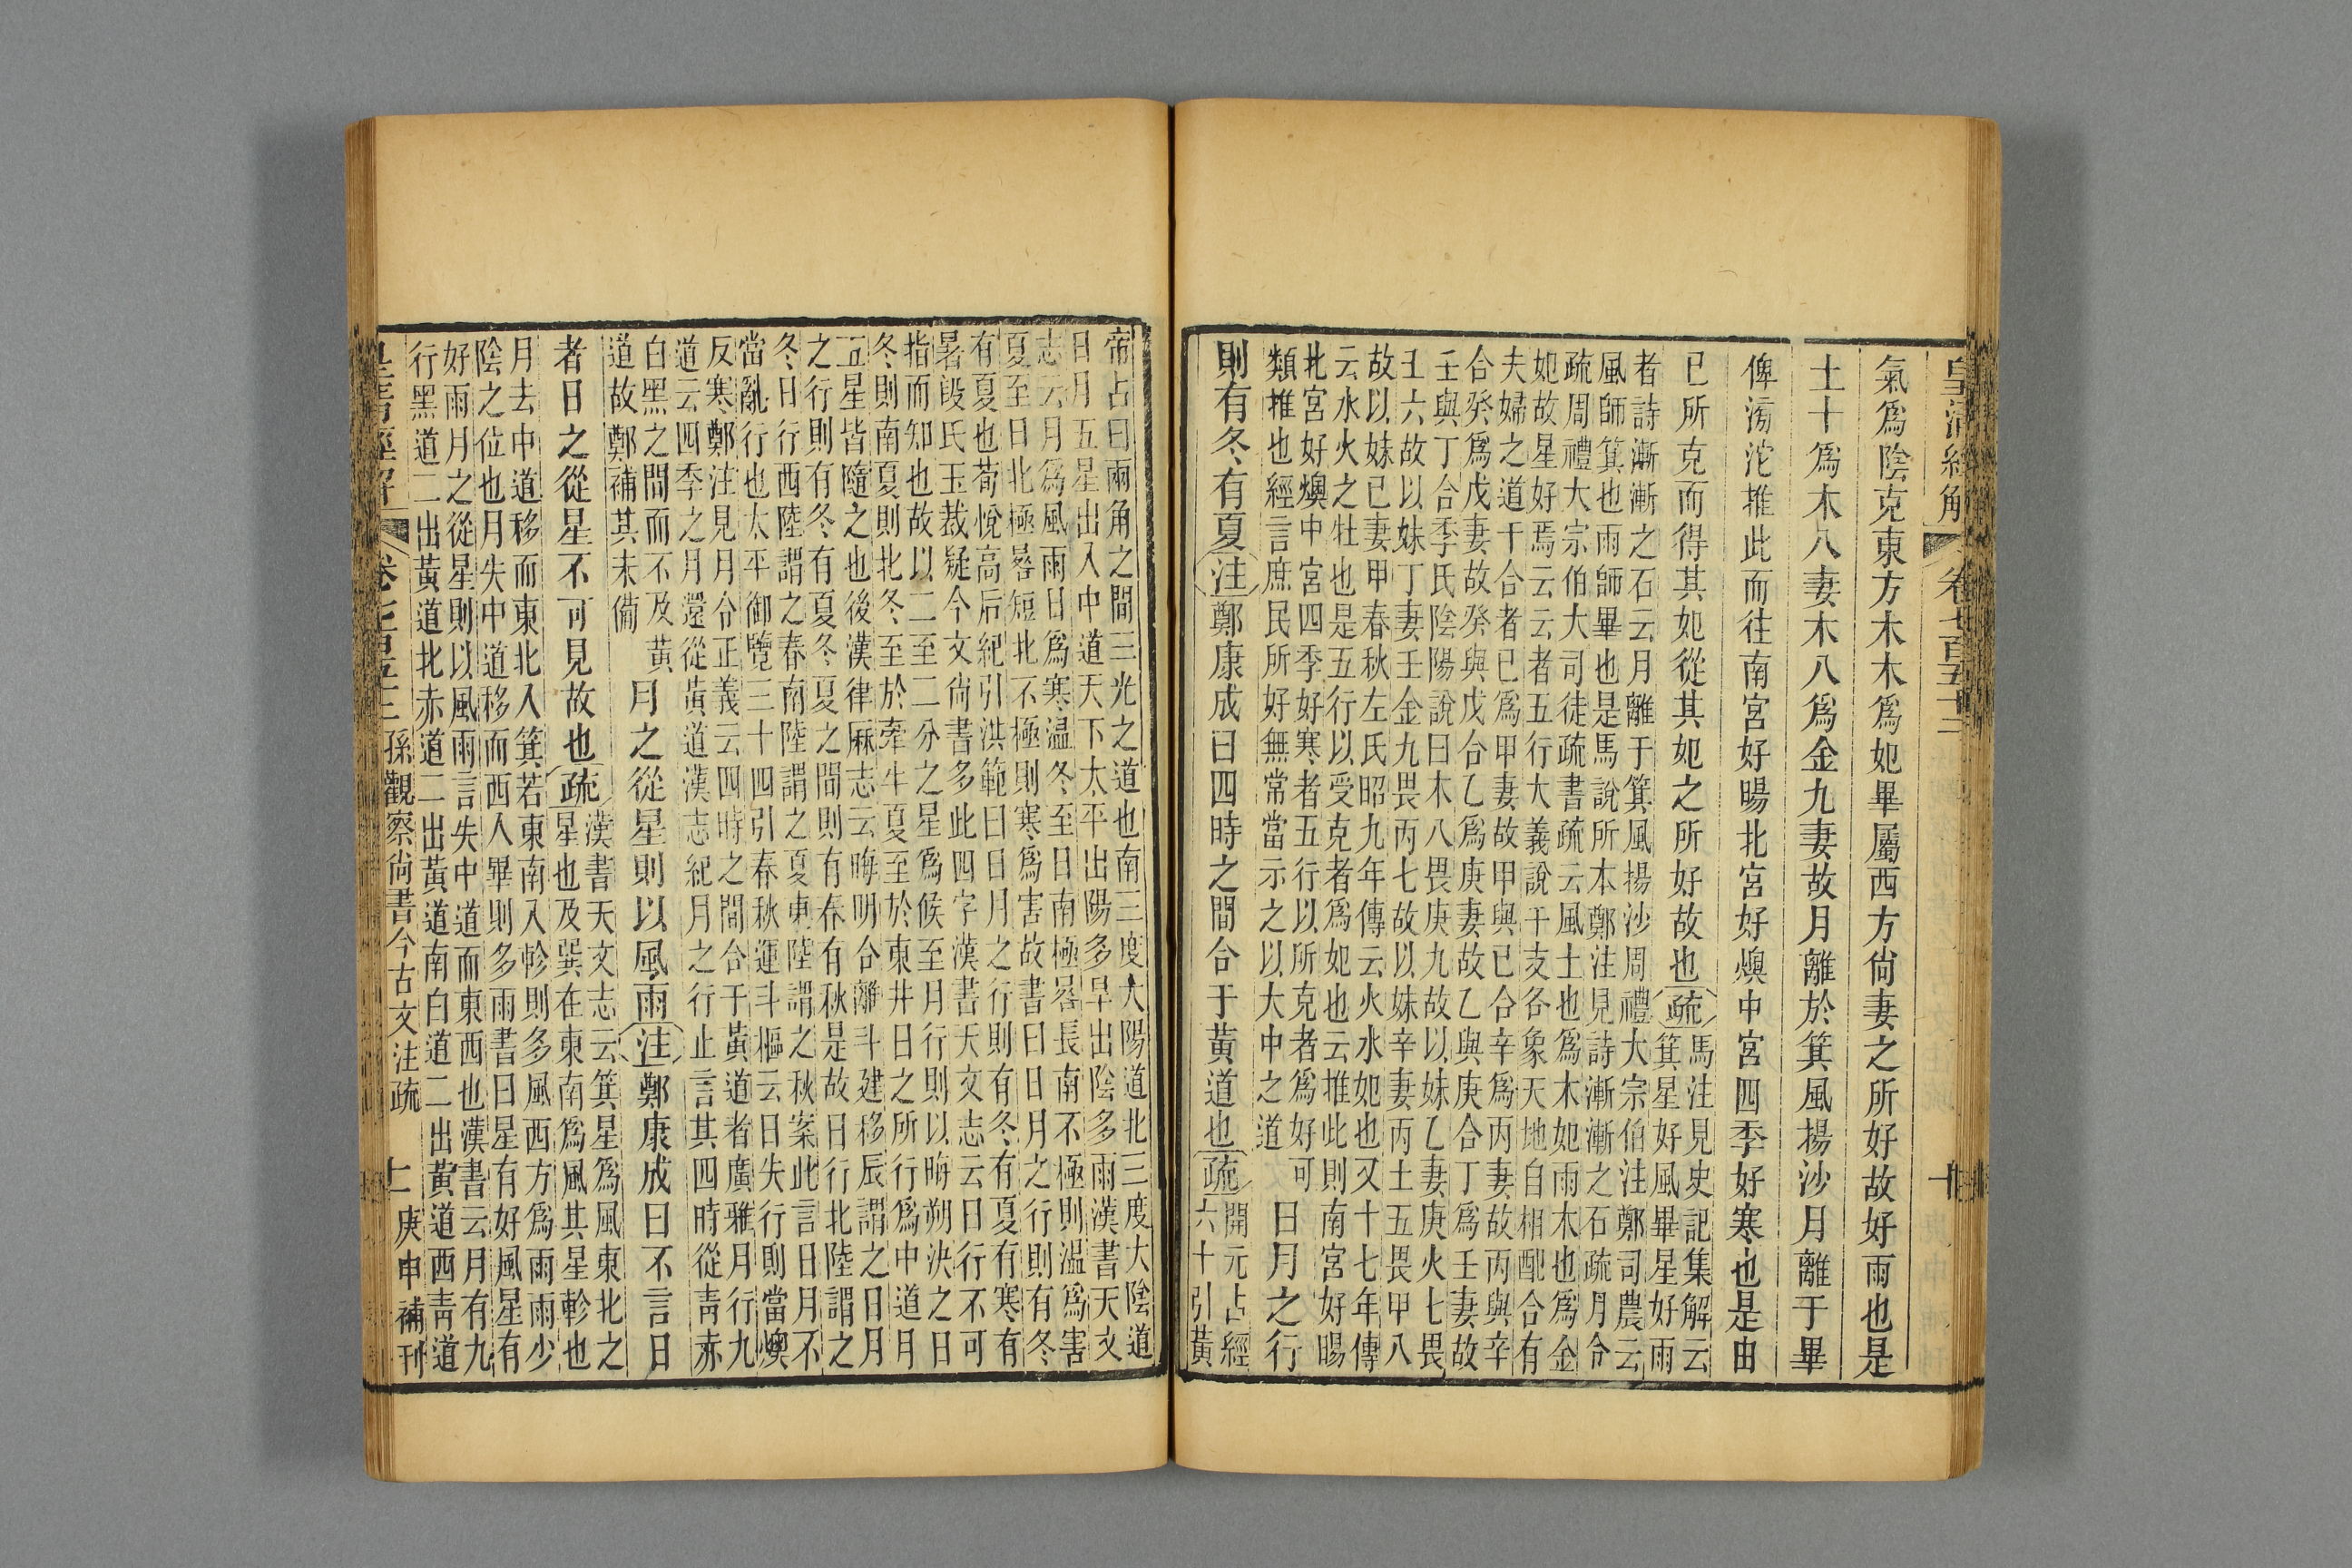 皇清經解 卷七百五十三 十
氣爲陰克東方木木爲妃畢屬西方尙妻之所好故好雨也是
土十爲木八妻木八爲金九妻故月離於箕風揚沙月離于畢
俾滂沱推此而往南宮好暘北宮好燠中宮四季好寒也是由
已所克而得其妃從其妃之所好故也疏馬注見史記集解云
箕星好風畢星好雨
者詩漸漸之石云月離于箕風揚沙周禮大宗伯注鄭司農云
風師箕也雨師畢也是馬說所本鄭注見詩漸漸之石疏月令
疏周禮大宗伯大司徒疏書疏云風土也爲木妃雨木也爲金
妃故星好焉云云者五行大義說干支各象天地自相配合有
夫婦之道干合者已爲甲妻故甲與已合辛爲丙妻故丙與辛
合癸爲戊妻故癸與戊合乙爲庚妻故乙與庚合丁爲壬妻故
壬與丁合季氏陰陽說曰木八畏庚九故以妹乙妻庚火七畏
壬六故以妹丁妻壬金九畏丙七故以妹辛妻丙土五畏甲八
故以妹已妻甲春秋左氏昭九年傳云火水妃也又十七年傳
云水火之牡也是五行以受克者爲妃也云推此則南宮好暘
北宮好燠中宮四季好寒者五行以所克者爲好可
類推也經言庶民所好無常當示之以大中之道
日月之行
則有冬有夏注鄭康成曰四時之間合于黃道也疏開元占經
六十引黃
帝占曰兩角之間三光之道也南三度大陽道北三度大陰道
日月五星出入中道天下太平出陽多旱出陰多雨漢書天文
志云月爲風雨日爲寒温冬至日南極晷長南不極則温爲害
夏至日北極晷短北不極則寒爲害故書曰日月之行則有冬
有夏也荀悅高后紀引洪範曰日月之行則有冬有夏有寒有
暑段氏玉裁疑今文尙書多此四字漢書天文志云日行不可
指而知也故以二至二分之星爲候至月行則以晦朔決之日
冬則南夏則北冬至於牽牛夏至於東井日之所行爲中道月
五星皆隨之也後漢律厤志云晦明合離斗建移辰謂之日月
之行則有冬有夏冬夏之間則有春有秋是故日行北陸謂之
冬日行西陸謂之春南陸謂之夏東陸謂之秋案此言日月不
當亂行也太平御覽三十四引春秋運斗樞云日失行則當燠
反寒鄭注見月令正義云四時之間合于黃道者廣雅月行九
道云四季之月還從黃道漢志紀月之行止言其四時從靑赤
白黑之間而不及黃
道故鄭補其未備
月之從星則以風雨注鄭康成曰不言日
者日之從星不可見故也疏漢書天文志云箕星爲風東北之
星也及巽在東南爲風其星軫也
月去中道移而東北入箕若東南入軫則多風西方爲雨雨少
陰之位也月失中道移而西入畢則多雨書曰星有好風星有
好雨月之從星則以風雨言失中道而東西也漢書云月有九
行黑道二出黃道北赤道二出黃道南白道二出黃道西靑道
皇清經解 卷七百五十三 孫觀察尙書今古文注疏 十一 庚申補刊